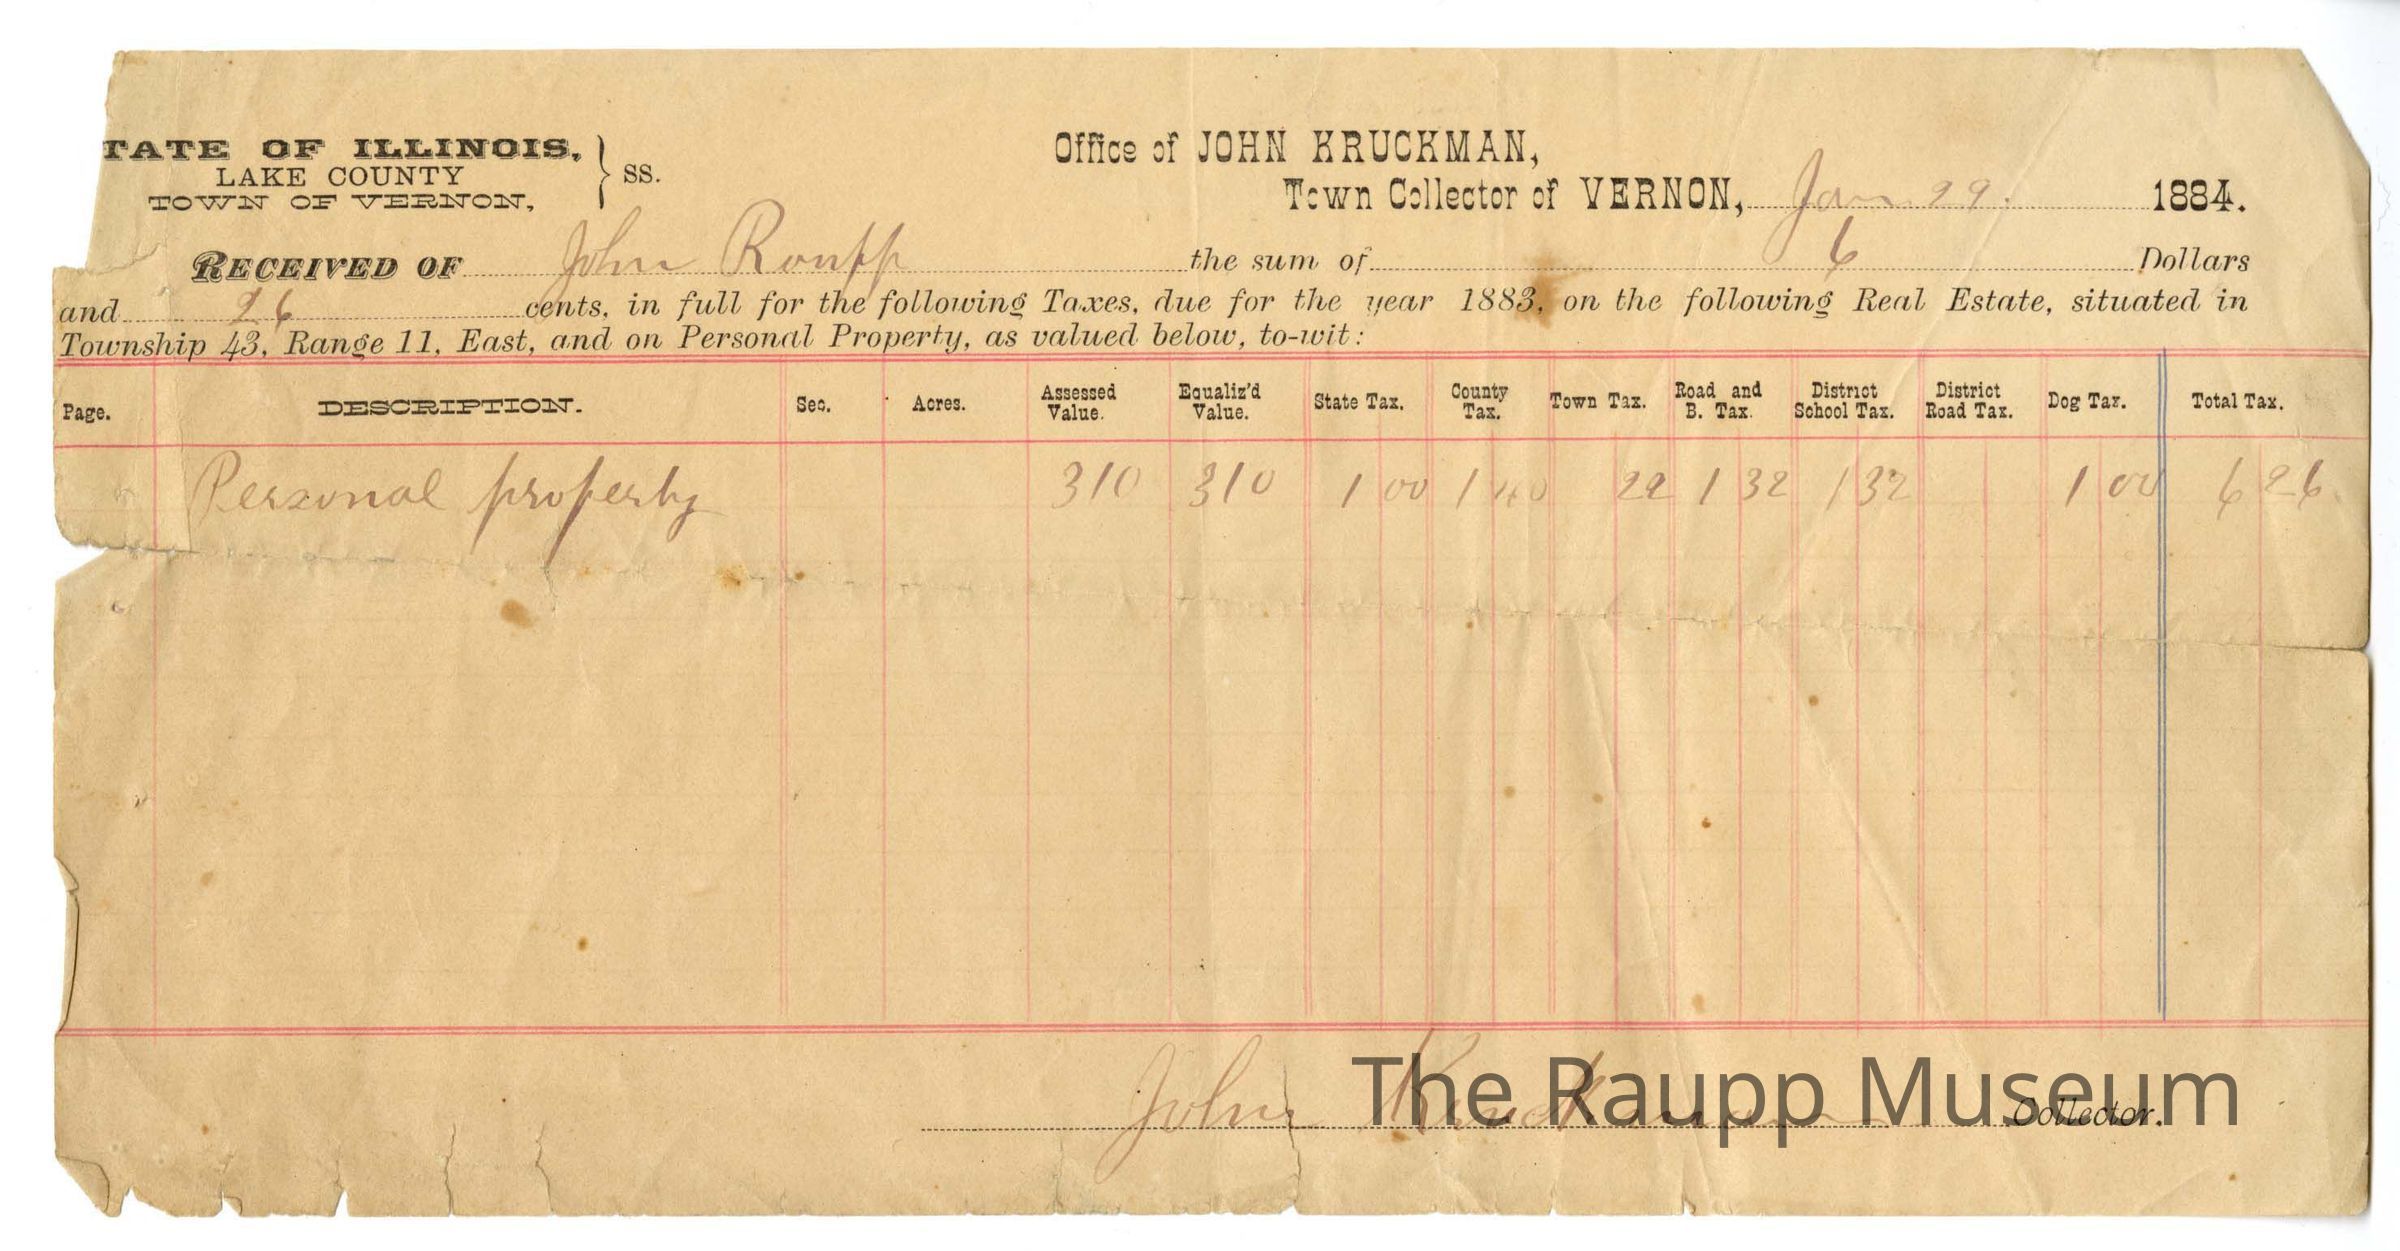 TATE OF ILLINOIS,
LAKE COUNTY
TOWN OF VERNON,
} SS.
Office of JOHN KRUCKMAN,
Town Collector of VERNON, Jan 29. 1884.
RECEIVED OF John Roupp the sum of 6 Dollars
and 26 cents, in full for the following Taxes, due for the year 1883, on the following Real Estate, situated in
Township 43, Range 11, East, and on Personal Property, as valued below, to-wit:
Page. DESCRIPTION. Sec. Acres. Assessed Value. Equaliz'd Value. State Tax. County Tax. Town Tax. Road and B. Tax. District School Tax. District Road Tax. Dog Tax. Total Tax.
Personal property 310 310 1 00 1 40 22 1 32 1 32 1 00 6 26
John Kruckman Collector.
The Raupp Museum